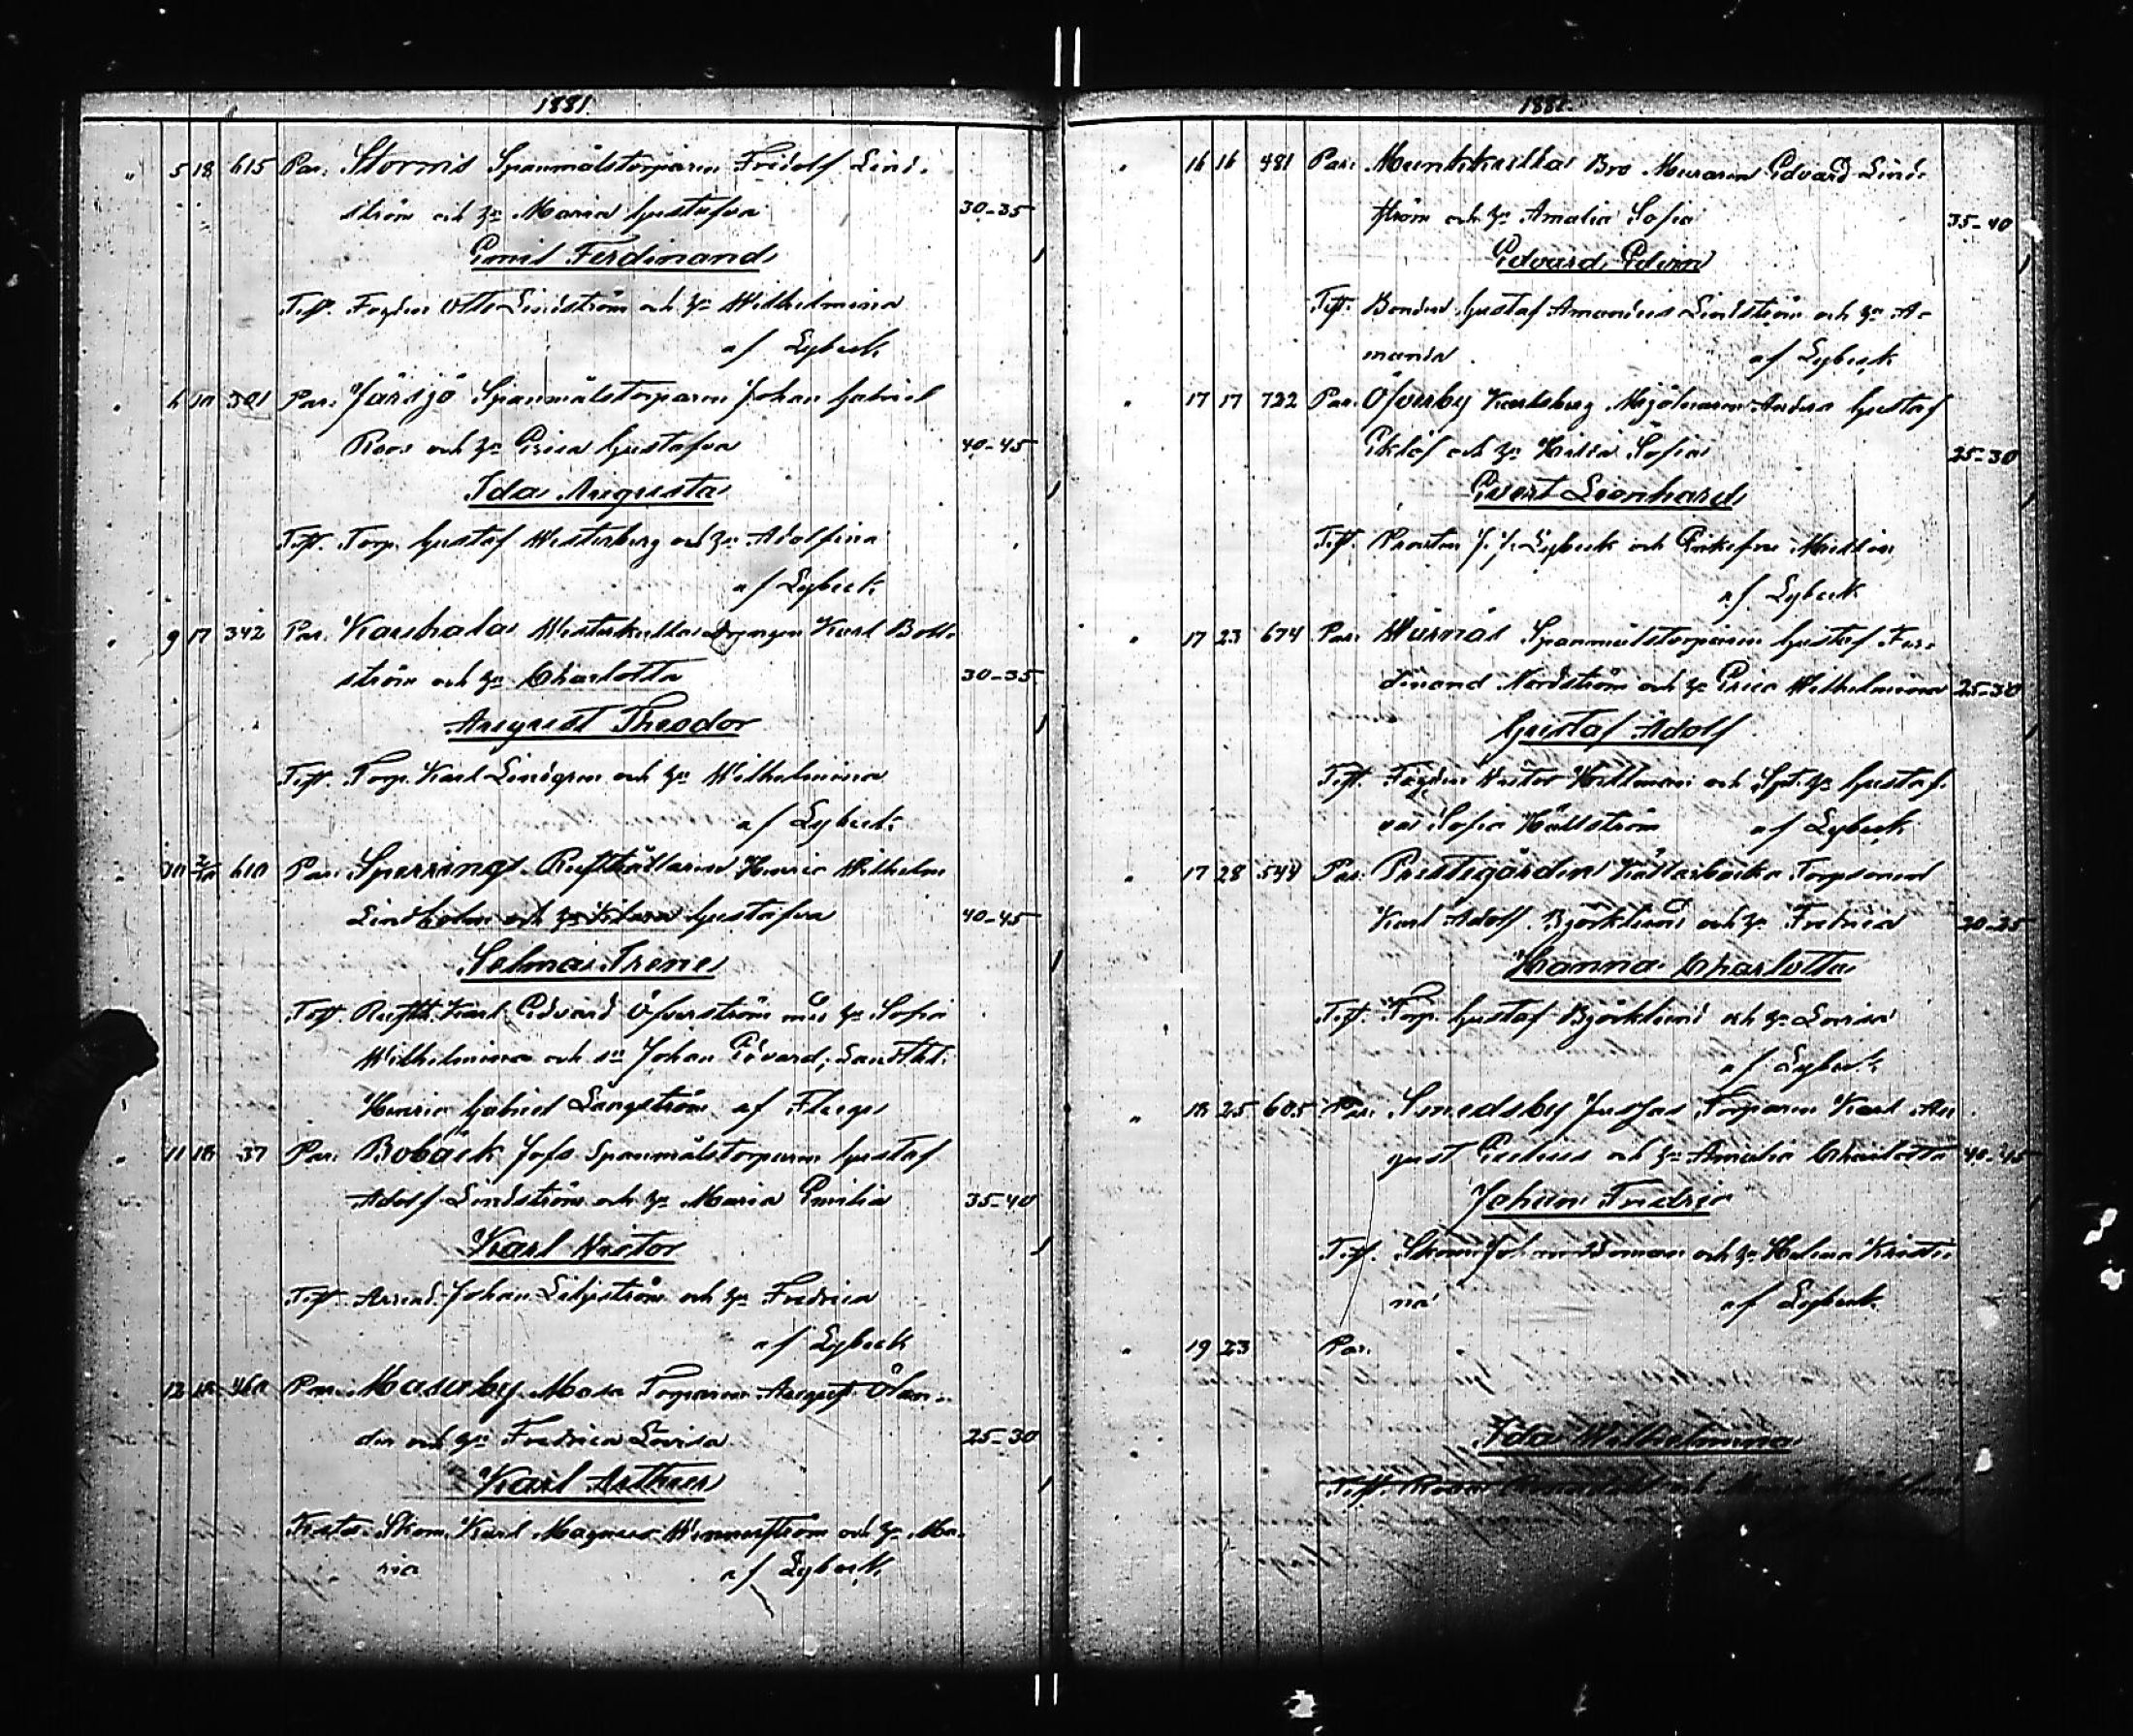 1881.
" 5 18 615 Par. Storms Spanmålstorparen Fridolf Lind-
ström och h:u Maria Gustafva 30-35
Emil Ferdinand
Test. Fogden Otto Lindström och h:u Wilhelmina
af Lybeck
" 6 10 301 Par. Järsjö Spanmålstorparen Johan Gabriel
Roos och h:u Erica Gustafva 40-45
Ida Augusta
Test. Torp. Gustaf Westerberg och h:u Adolfina
af Lybeck
" 9 17 342 Par. Karhala Westerkulla Drengen Karl Boll-
ström och h:u Charlotta 30-35
August Theodor
Test. Torp. Karl Lindgren och h:u Wilhelmina
af Lybeck
" 10 610 Par. Sperrings Rusthållaren Henric Wilhelm
Lindholm och h:u Gustafva 40-45
Selma Irene
Test. Rusth. Karl Edvard Öfverström med h:u Sofia
Wilhelmina och s:n Johan Edvard, Landth.
Henric Gabriel Långström af Flege
" 11 18 37 Par. Bobäck Jofs Spanmålstorparen Gustaf
Adolf Lindström och h:u Maria Emilia 35-40
Karl Victor
Test. Arrend. Johan Liljeström och h:u Fredrica
af Lybeck
12 18 460 Par. Masaby Masa Torparen August Ölan-
der och h:u Fredrica Lovisa 25-30
Karl Arthur
Testes. Skom. Karl Magnus Wennerström och h:u Ma-
ria af Lybeck
1881.
" 16 16 481 Par. Munkkulla Bro Muraren Edvard Lind-
ström och h:u Amalia Sofia 35-40
Edvard Edvin
Test. Bonden Gustaf Amandus Lindström och h:u A-
manda af Lybeck
" 17 17 722 Par. Öfverby Karlsberg Mjölnaren Anders Gustaf
Eklöf och h:u Hilda Sofia 25-30
Evert Leonhard
Test. Prosten J. J. Lybeck och Enkefru
af Lybeck
" 17 23 674 Par. Wärnäs Spanmålstorparen Gustaf Fer-
dinand Nordström och h:u Erica Wilhelmina 25-30
Gustaf Adolf
Test. Fogden Victor Hellman och Spt. h:u Gustaf-
va Sofia Hällström af Lybeck
" 17 28 544 Par. Prestegården Källarbacka Torpsonen
Karl Adolf Björklund och h:u Fredrica 20-25
Hanna Charlotta
Test. Torp. Gustaf Björklund och h:u Lovisa
af Lybeck
" 18 25 605 Par. Smedsby Jussas Torparen Karl Au-
gust och h:u Amalia Charlotta 40-45
Johan Fredric
Test. och h:u Helena Kristi-
na af Lybeck
" 19 23 Par.
Ida Wilhelmina
Test.